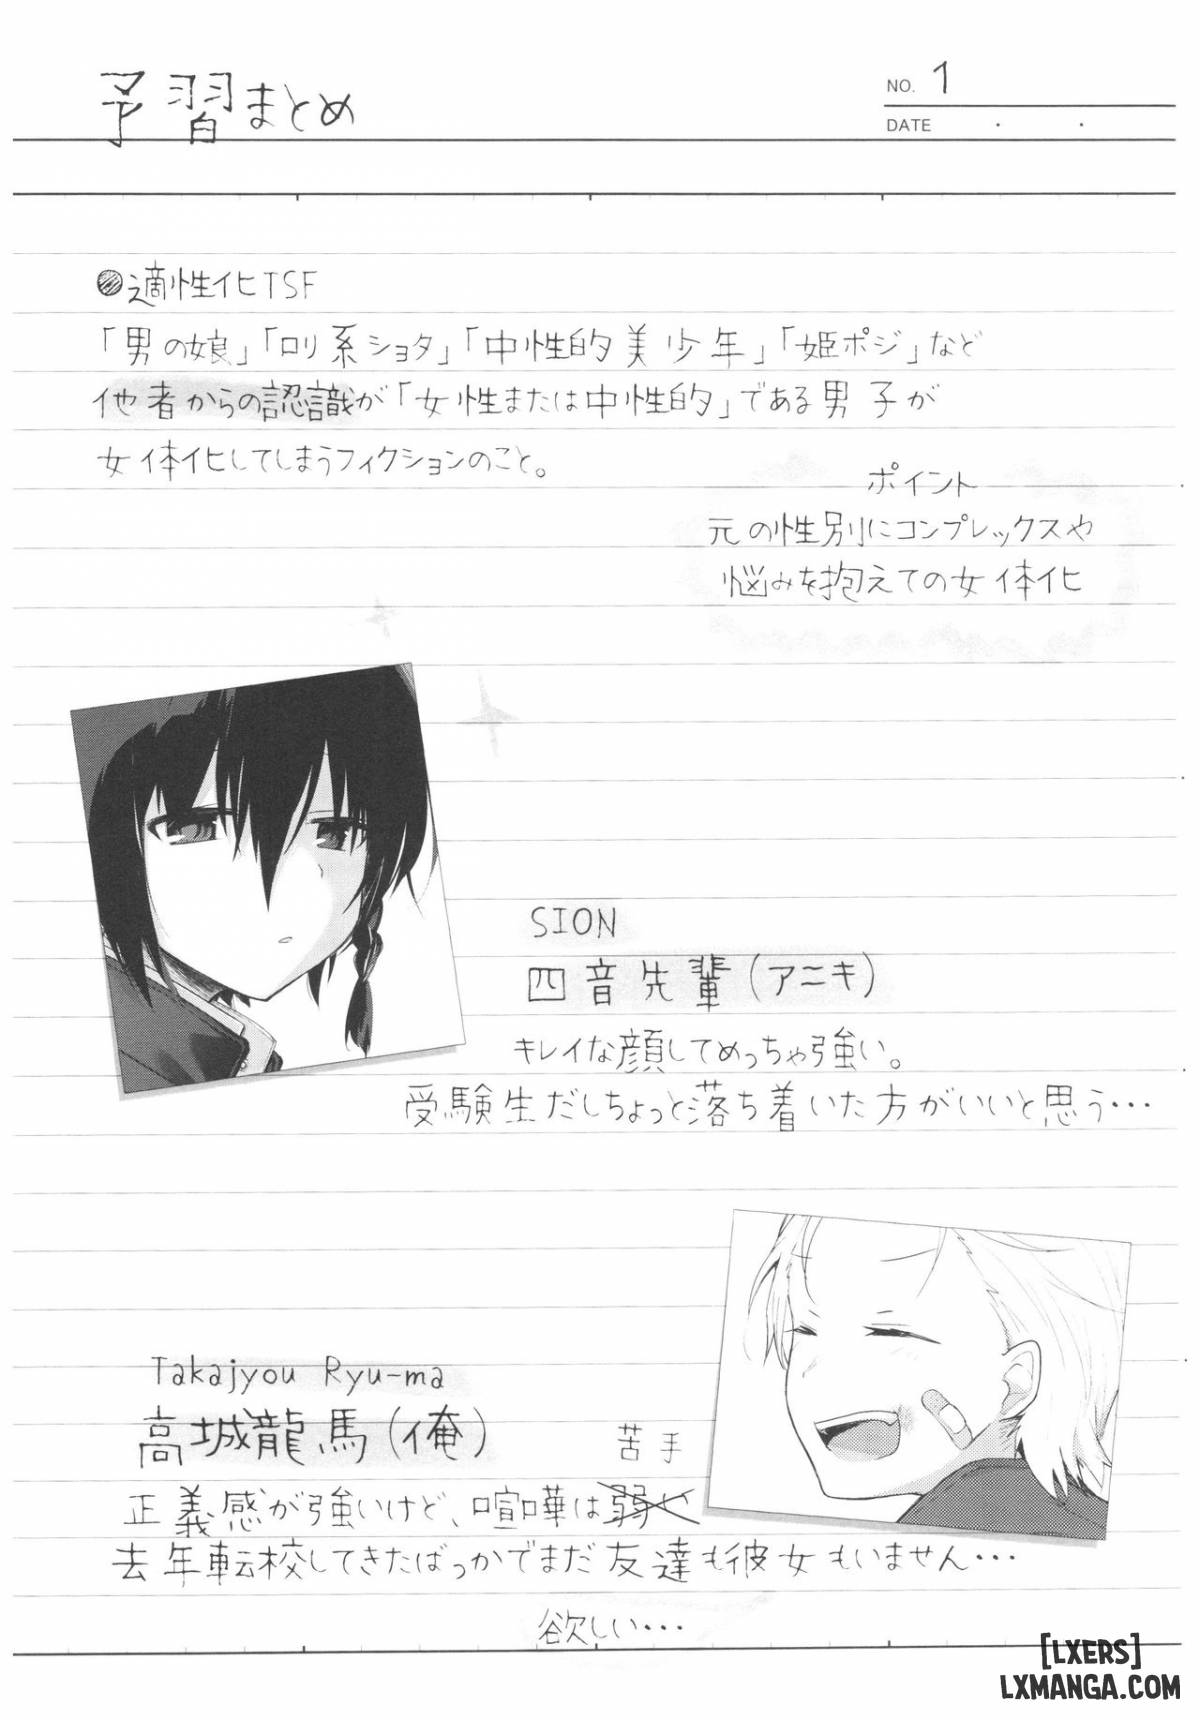 予習まとめ
NO. 1
DATE ・ ・
●適性化TSF
「男の娘」「ロリ系ショタ」「中性的美少年」「姫ポジ」など
他者からの認識が「女性または中性的」である男子が
女体化してしまうフィクションのこと。
ポイント
元の性別にコンプレックスや
悩みを抱えての女体化
SION
四音先輩(アニキ)
キレイな顔してめっちゃ強い。
受験生だしちょっと落ち着いた方がいいと思う・・・
Takajyou Ryu-ma
高城龍馬(俺)
苦手
正義感が強いけど、喧嘩は弱い
去年転校してきたばっかでまだ友達も彼女もいません・・・
欲しい・・・
[LXERS]
LXMANGA.COM